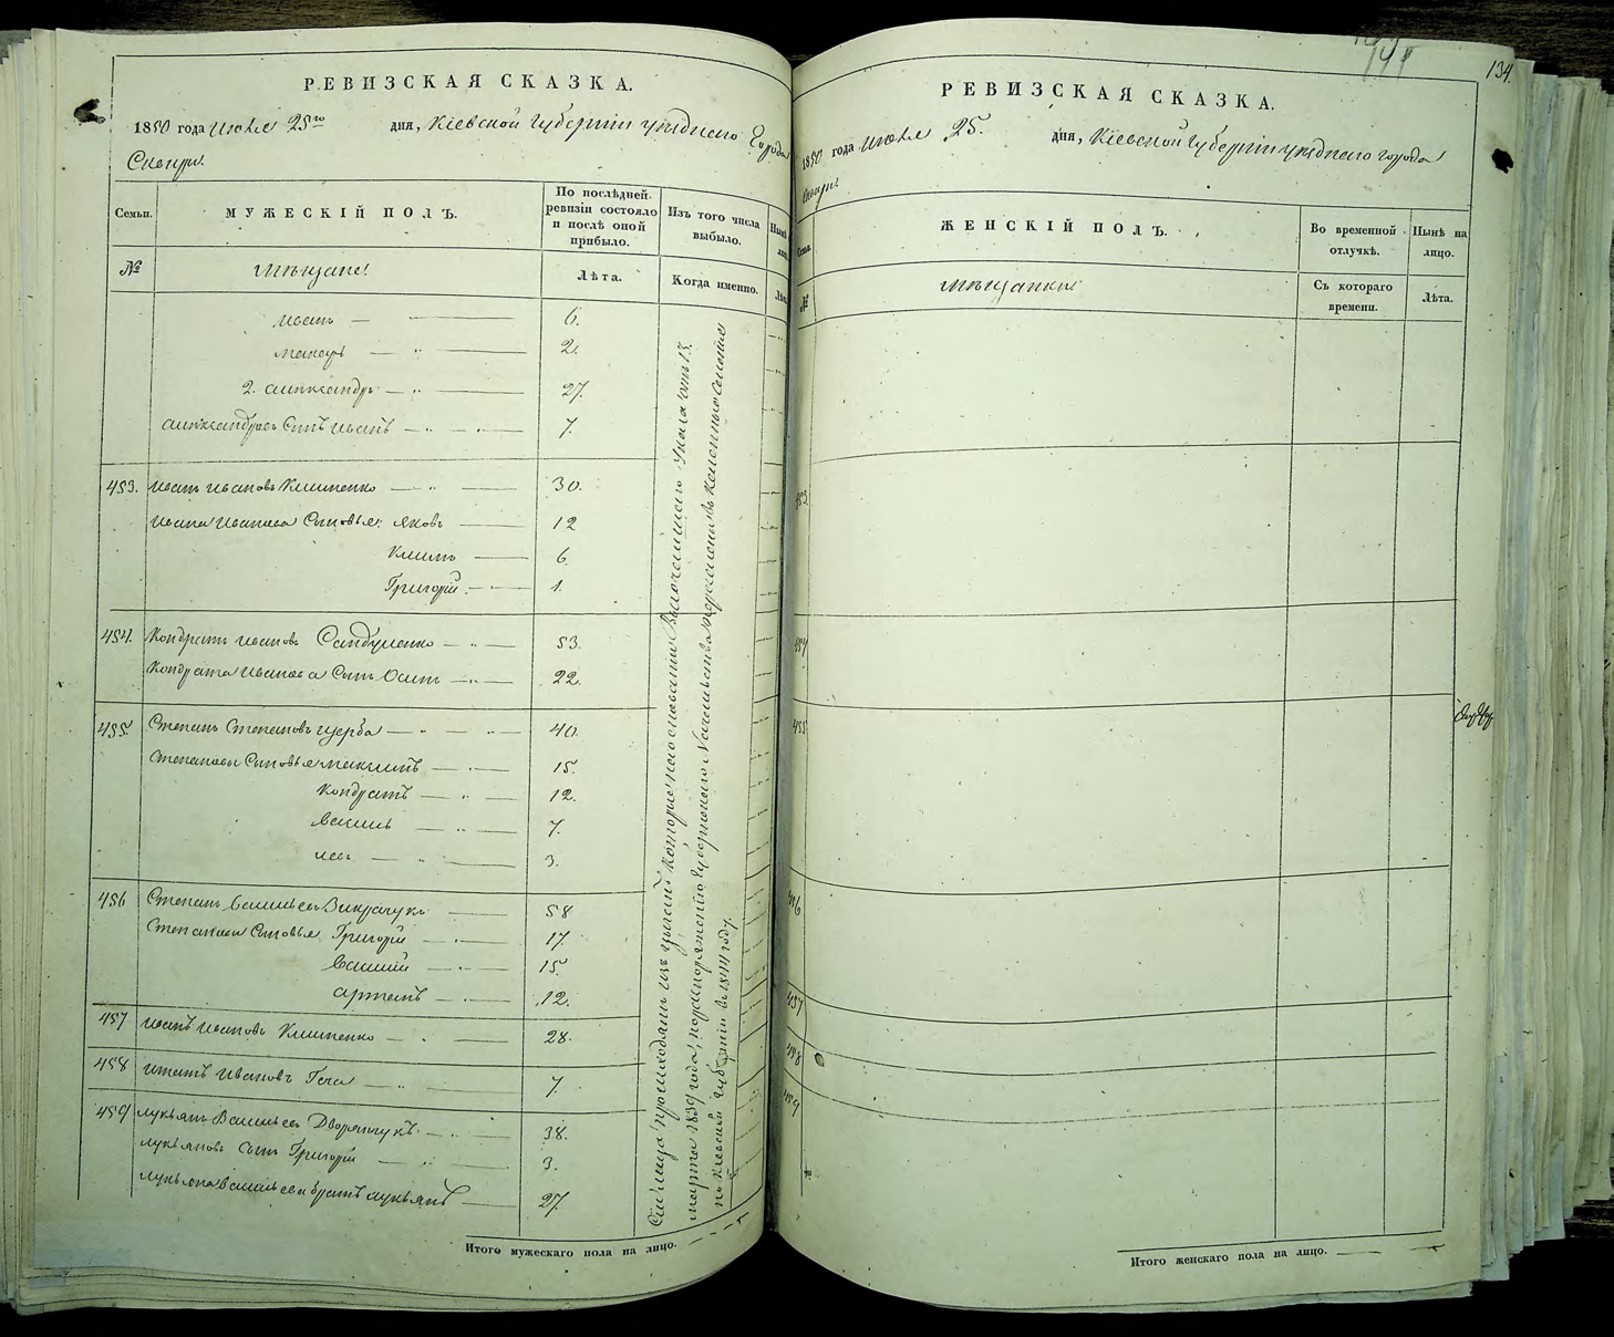 РЕВИЗСКАЯ СКАЗКА.
1850 года июля 25го дня, Кіевской Губерніи уѣзднаго Города
Сквиры
Семьи. МУЖЕСКІЙ ПОЛЪ. По послѣдней ревизіи состояло и послѣ оной прибыло. Изъ того числа выбыло. Нынѣ на лицо.
№ Мѣщане Лѣта. Когда именно. Лѣта.
Иванъ 6.
Макаръ 2.
2. Александръ 27.
Александровъ Сынъ Иванъ 7.
453. Иванъ Ивановъ Клименко 30.
Ивана Иванова Сыновья: Яковъ 12
Климъ 6
Григорій 1.
454. Кондратъ Ивановъ Сандуленко 53.
Кондрата Иванова Сынъ Осипъ 22.
455. Степанъ Степановъ Щерба 40.
Степановы Сыновья Максимъ 15.
Кондратъ 12.
Василь 7.
Левъ 3.
456 Степанъ Васильевъ 58
Степановы Сыновья Григорій 17.
Василій 15.
Артемъ 12.
457 Иванъ Ивановъ Клименко 28.
458 Игнатъ Ивановъ 7.
459 Лукьянъ Васильевъ Дворянчукъ 38.
Лукьяновъ Сынъ Григорій 3.
Лукьяна Васильева братъ Лукьянъ 27.
Сіи лица происходятъ изъ цыганъ которые на основаніи Высочайшаго Указа отъ 13.
марта 1839 года, по распоряженію Губернскаго Начальства въ казенныя Селенія
по Кіевской Губерніи въ 1844 году.
Итого мужескаго пола на лицо.
134
РЕВИЗСКАЯ СКАЗКА.
1850 года июля 25. дня, Кіевской Губерніи уѣзднаго города
Сквиры
Семьи. ЖЕНСКІЙ ПОЛЪ. Во временной отлучкѣ. Нынѣ на лицо.
№ Мѣщанки Съ котораго времени. Лѣта.
453
454
455
456
457
458
459
Итого женскаго пола на лицо.